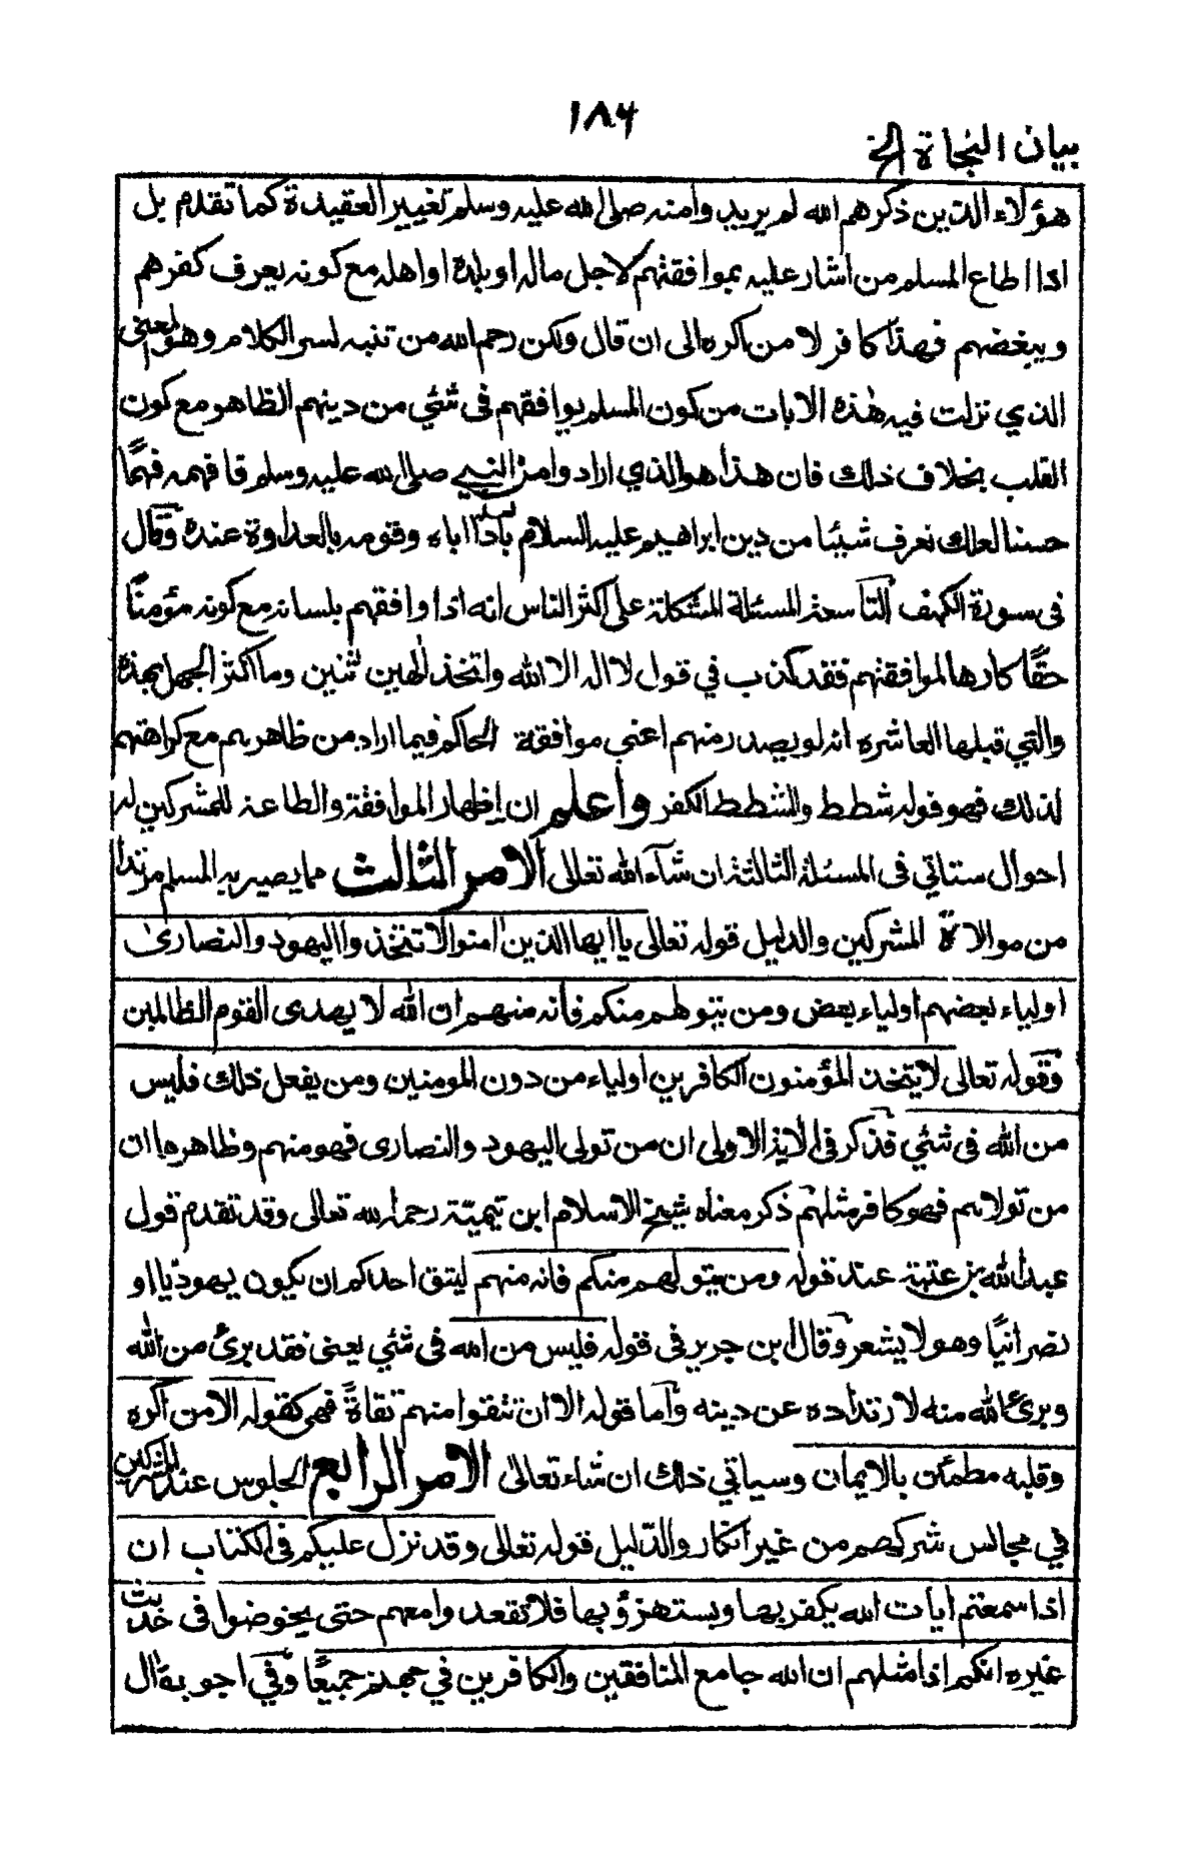 ١٨٦
بيان النجاة الخ
هؤلاء الذين ذكرهم الله لم يريدوا منه صلى الله عليه وسلم تغيير العقيدة كما تقدم بل
اذا اطاع المسلم من اشار عليه بموافقتهم لاجل ماله او بلده او اهله مع كونه يعرف كفرهم
ويبغضهم فهذا كافر لا من اكره الى ان قال ولكن رحم الله من تنبه لسر الكلام وهو المعنى
الذي نزلت فيه هذه الايات من كون المسلم يوافقهم فى شئي من دينهم الظاهر مع كون
القلب بخلاف ذلك فان هذا هو الذي ارادوا من النبي صلى الله عليه وسلم فافهمه فهمًا
حسنا لعلك تعرف شيئا من دين ابراهيم عليه السلام بادأ اباه وقومه بالعداوة عنده وقال
فى سورة الكهف المسئلة المشكلة على اكثر الناس انه اذا وافقهم بلسانه مع كونه مؤمنًا
حقًا كارها لموافقتهم فقد كذب في قول لا اله الا الله واتخذ الهين اثنين وما اكثر الجهل بهذه
والتي قبلها العاشره انه لو يصدر منهم اعني موافقة الحاكم فيما اراد من ظاهرهم مع كراهتهم
لذلك فهو قوله شطط والشطط الكفر واعلم ان اظهار الموافقة والطاعة للمشركين له
احوال ستاتي فى المسئلة الثالثة ان شآء الله تعالى الامر الثالث مما يصير به المسلم مرتدا
من موالاة المشركين والدليل قوله تعالى يا ايها الذين امنوا لا تتخذوا اليهود والنصارى
اولياء بعضهم اولياء بعض ومن يتولهم منكم فانه منهم ان الله لا يهدى القوم الظالمين
وقوله تعالى لا يتخذ المؤمنون الكافرين اولياء من دون المومنين ومن يفعل ذلك فليس
من الله فى شئي فذكر فى الاية الاولى ان من تولى اليهود والنصارى فهو منهم وظاهرها ان
من تولاهم فهو كافر مثلهم ذكر معناه شيخ الاسلام ابن تيميّة رحمه الله تعالى وقد تقدم قول
عبد الله بن عتبة عند قوله ومن يتولهم منكم فانه منهم ليتق احدكم ان يكون يهوديّا او
نصرانيًا وهو لا يشعر وقال ابن جرير فى قوله فليس من الله فى شئي يعنى فقد برئ من الله
وبرئ الله منه لارتداده عن دينه واما قوله الا ان تتقوا منهم تقاةً فهى كقوله الا من اكره
وقلبه مطمئن بالايمان وسياتي ذلك ان شاء تعالى الامر الرابع الجلوس عند المشركين
في مجالس شركهم من غير انكار والدّليل قوله تعالى وقد نزل عليكم فى الكتاب ان
اذا سمعتم ايات الله يكفر بها ويستهزؤ بها فلا تقعدوا معهم حتى يخوضوا فى حديث
غيره انكم اذا مثلهم ان الله جامع المنافقين والكافرين في جهنم جميعًا وفي اجوبة ال